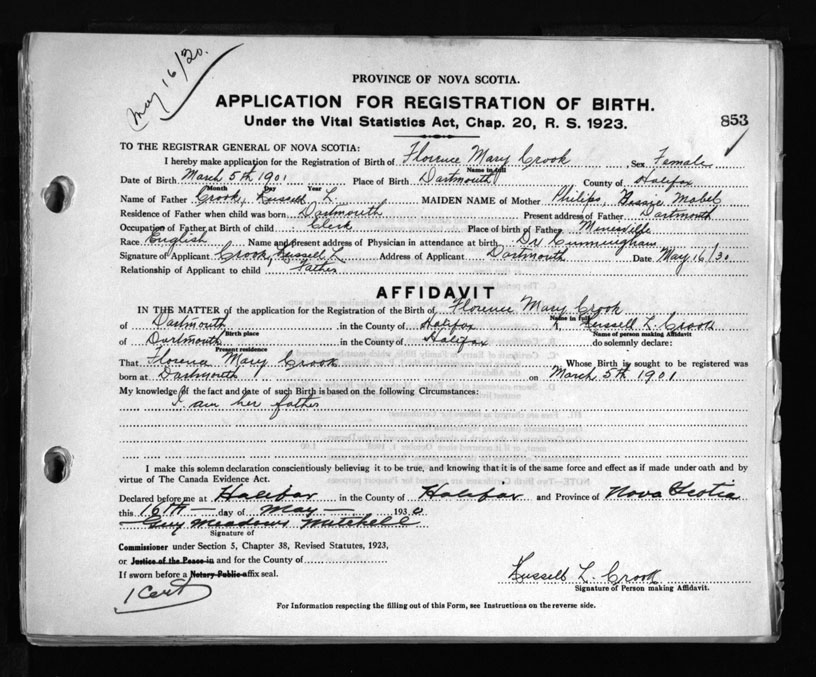 May 16/30.
PROVINCE OF NOVA SCOTIA.
APPLICATION FOR REGISTRATION OF BIRTH.
853
Under the Vital Statistics Act, Chap. 20, R. S. 1923.
TO THE REGISTRAR GENERAL OF NOVA SCOTIA:
I hereby make application for the Registration of Birth of Florence Mary Crook, Sex Female
Name in full
Date of Birth March 5th 1901 Place of Birth Dartmouth County of Halifax
Month Day Year
Name of Father Crook, Russell L. MAIDEN NAME of Mother Philips, Mabel
Residence of Father when child was born Dartmouth Present address of Father Dartmouth
Occupation of Father at Birth of child Clerk Place of birth of Father Mineville
Race English Name and present address of Physician in attendance at birth Dr Cunningham
Signature of Applicant Crook, Russell L. Address of Applicant Dartmouth Date May 16/30
Relationship of Applicant to child Father
AFFIDAVIT
IN THE MATTER of the application for the Registration of the Birth of Florence Mary Crook
Name in full
of Dartmouth in the County of Halifax I, Russell L. Crook
Birth place Name of person making Affidavit
of Dartmouth in the County of Halifax do solemnly declare:
Present residence
That Florence Mary Crook Whose Birth is sought to be registered was
born at Dartmouth on March 5th 1901
My knowledge of the fact and date of such Birth is based on the following Circumstances:
I am her father
I make this solemn declaration conscientiously believing it to be true, and knowing that it is of the same force and effect as if made under oath and by
virtue of The Canada Evidence Act.
Declared before me at Halifax in the County of Halifax and Province of Nova Scotia
this 16th day of May 1930
Guy Meadows Mitchell
Signature of
Commissioner under Section 5, Chapter 38, Revised Statutes, 1923,
or Justice of the Peace in and for the County of
If sworn before a Notary Public affix seal.
1 Cert
Russell L. Crook
Signature of Person making Affidavit.
For Information respecting the filling out of this Form, see Instructions on the reverse side.